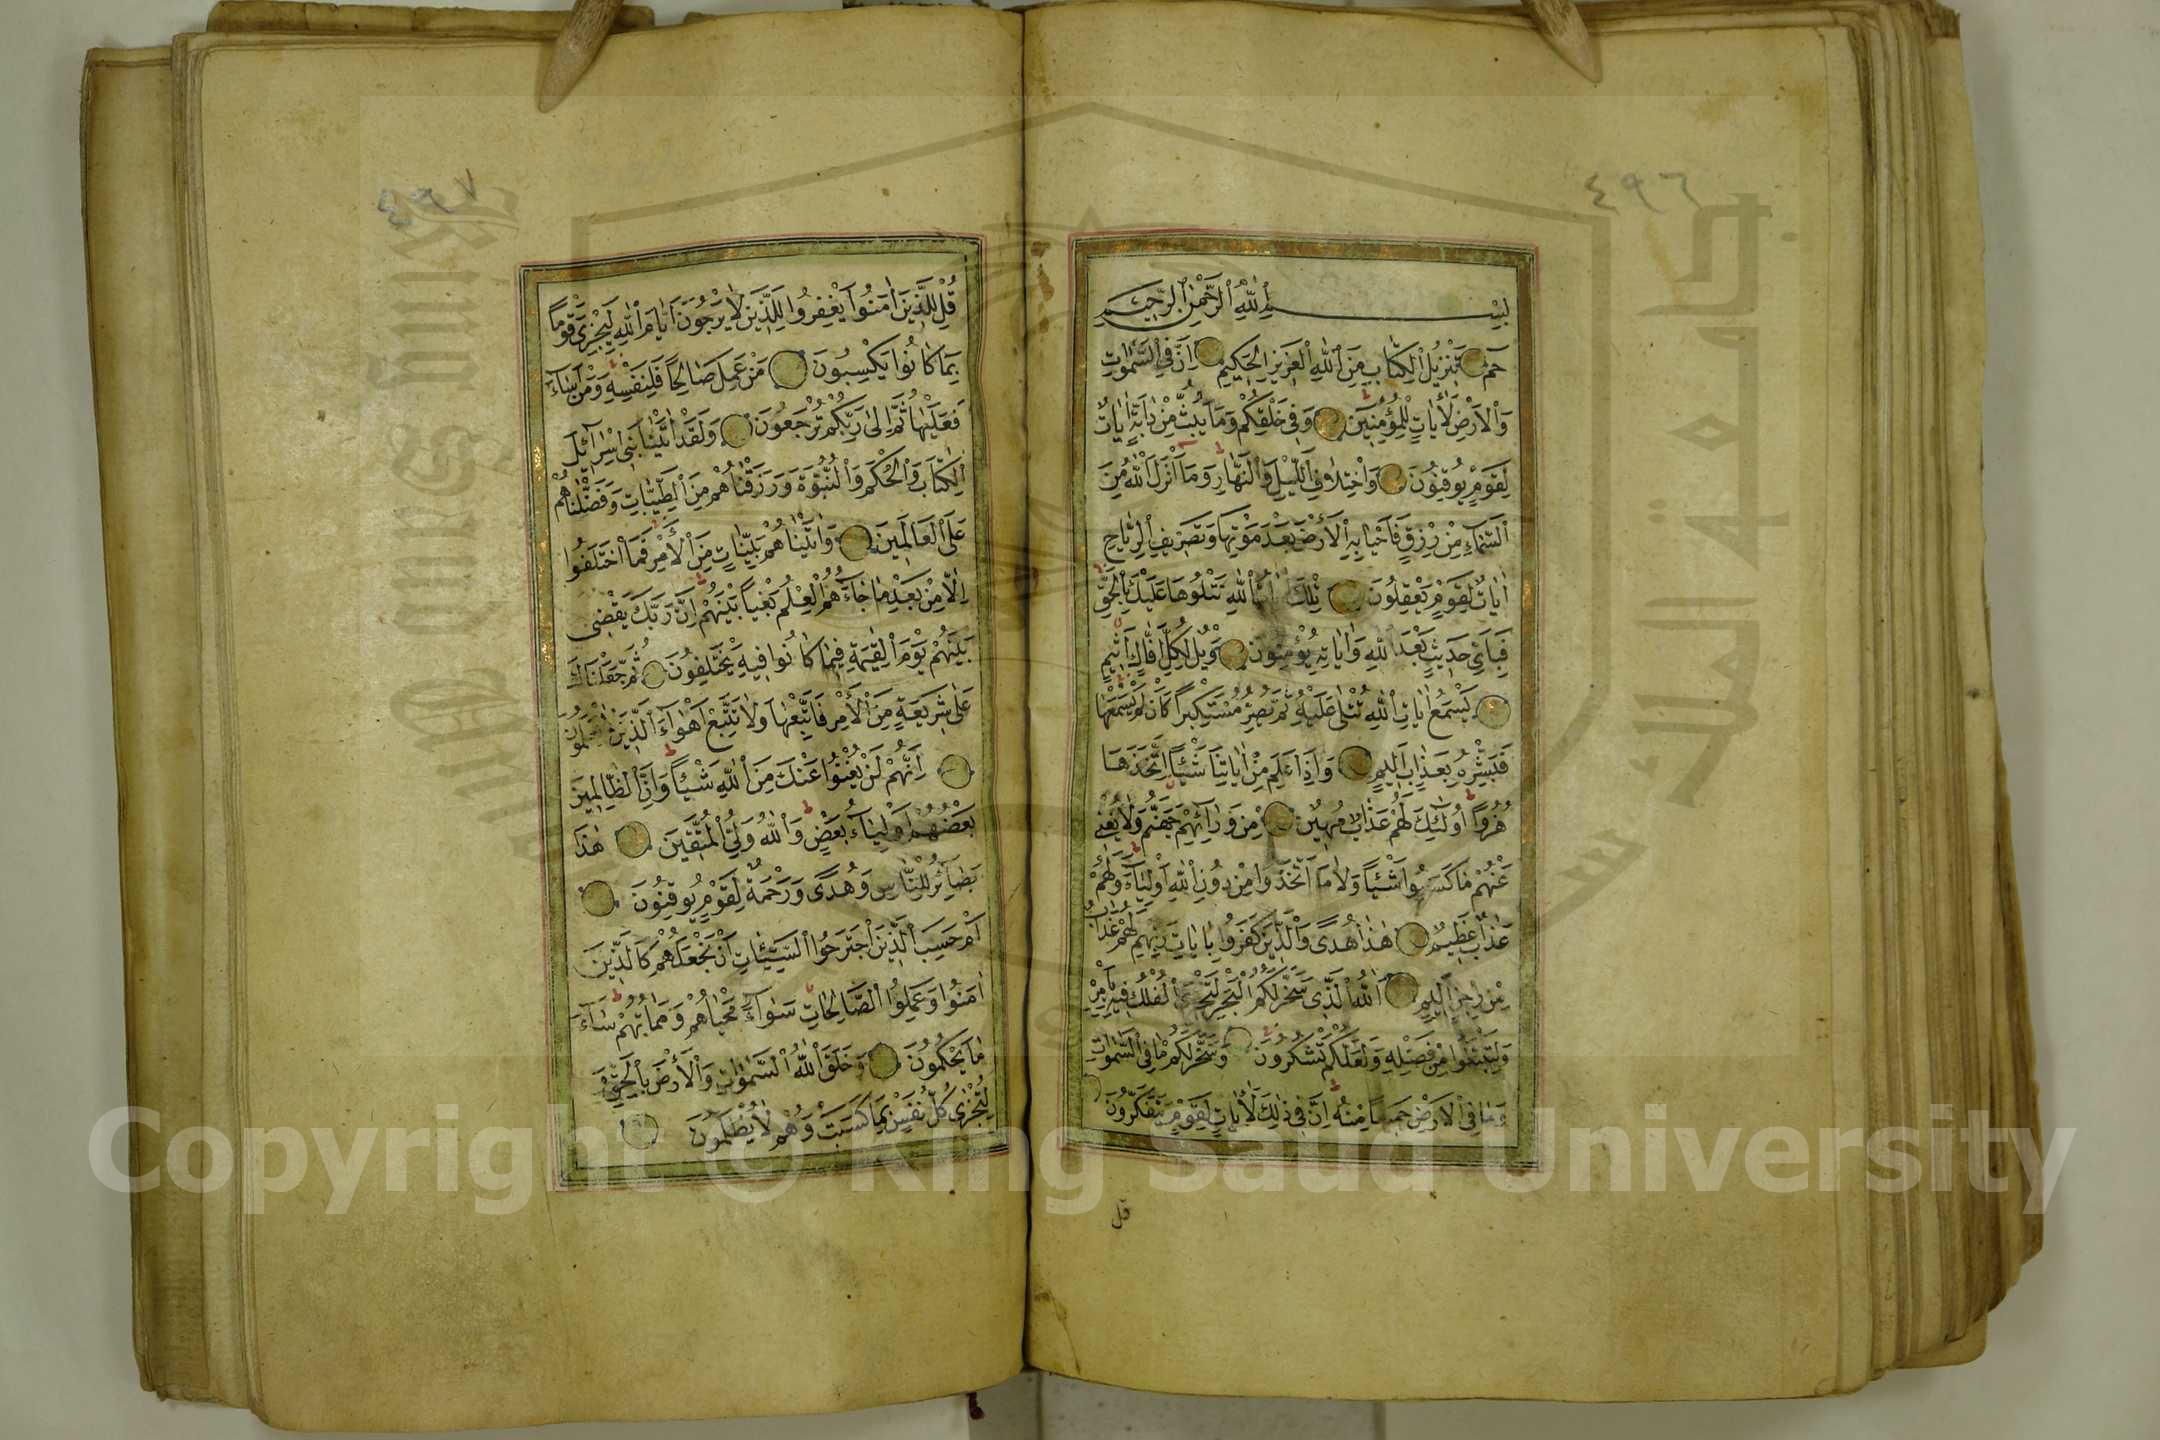 ٤٩٦
بِسْمِ اللّٰهِ الرَّحْمٰنِ الرَّحِيمِ
حٰمٓ تَنْزِيلُ الْكِتَابِ مِنَ اللّٰهِ الْعَزِيزِ الْحَكِيمِ اِنَّ فِي السَّمٰوَاتِ
وَالْاَرْضِ لَاٰيَاتٍ لِلْمُؤْمِنِينَ وَفِي خَلْقِكُمْ وَمَا يَبُثُّ مِنْ دَابَّةٍ اٰيَاتٌ
لِقَوْمٍ يُوقِنُونَ وَاخْتِلَافِ اللَّيْلِ وَالنَّهَارِ وَمَا اَنْزَلَ اللّٰهُ مِنَ
السَّمَاءِ مِنْ رِزْقٍ فَاَحْيَا بِهِ الْاَرْضَ بَعْدَ مَوْتِهَا وَتَصْرِيفِ الرِّيَاحِ
اٰيَاتٌ لِقَوْمٍ يَعْقِلُونَ تِلْكَ اٰيَاتُ اللّٰهِ نَتْلُوهَا عَلَيْكَ بِالْحَقِّ
فَبِاَيِّ حَدِيثٍ بَعْدَ اللّٰهِ وَاٰيَاتِهِ يُؤْمِنُونَ وَيْلٌ لِكُلِّ اَفَّاكٍ اَثِيمٍ
يَسْمَعُ اٰيَاتِ اللّٰهِ تُتْلٰى عَلَيْهِ ثُمَّ يُصِرُّ مُسْتَكْبِرًا كَاَنْ لَمْ يَسْمَعْهَا
فَبَشِّرْهُ بِعَذَابٍ اَلِيمٍ وَاِذَا عَلِمَ مِنْ اٰيَاتِنَا شَيْئًا اتَّخَذَهَا
هُزُوًا اُولٰئِكَ لَهُمْ عَذَابٌ مُهِينٌ مِنْ وَرَائِهِمْ جَهَنَّمُ وَلَا يُغْنِي
عَنْهُمْ مَا كَسَبُوا شَيْئًا وَلَا مَا اتَّخَذُوا مِنْ دُونِ اللّٰهِ اَوْلِيَاءَ وَلَهُمْ
عَذَابٌ عَظِيمٌ هٰذَا هُدًى وَالَّذِينَ كَفَرُوا بِاٰيَاتِ رَبِّهِمْ لَهُمْ عَذَابٌ
مِنْ رِجْزٍ اَلِيمٌ اَللّٰهُ الَّذِي سَخَّرَ لَكُمُ الْبَحْرَ لِتَجْرِيَ الْفُلْكُ فِيهِ بِاَمْرِهِ
وَلِتَبْتَغُوا مِنْ فَضْلِهِ وَلَعَلَّكُمْ تَشْكُرُونَ وَسَخَّرَ لَكُمْ مَا فِي السَّمٰوَاتِ
وَمَا فِي الْاَرْضِ جَمِيعًا مِنْهُ اِنَّ فِي ذٰلِكَ لَاٰيَاتٍ لِقَوْمٍ يَتَفَكَّرُونَ
قل
٤٩٧
قُلْ لِلَّذِينَ اٰمَنُوا يَغْفِرُوا لِلَّذِينَ لَا يَرْجُونَ اَيَّامَ اللّٰهِ لِيَجْزِيَ قَوْمًا
بِمَا كَانُوا يَكْسِبُونَ مَنْ عَمِلَ صَالِحًا فَلِنَفْسِهِ وَمَنْ اَسَاءَ
فَعَلَيْهَا ثُمَّ اِلٰى رَبِّكُمْ تُرْجَعُونَ وَلَقَدْ اٰتَيْنَا بَنِي اِسْرَائِيلَ
الْكِتَابَ وَالْحُكْمَ وَالنُّبُوَّةَ وَرَزَقْنَاهُمْ مِنَ الطَّيِّبَاتِ وَفَضَّلْنَاهُمْ
عَلَى الْعَالَمِينَ وَاٰتَيْنَاهُمْ بَيِّنَاتٍ مِنَ الْاَمْرِ فَمَا اخْتَلَفُوا
اِلَّا مِنْ بَعْدِ مَا جَاءَهُمُ الْعِلْمُ بَغْيًا بَيْنَهُمْ اِنَّ رَبَّكَ يَقْضِي
بَيْنَهُمْ يَوْمَ الْقِيٰمَةِ فِيمَا كَانُوا فِيهِ يَخْتَلِفُونَ ثُمَّ جَعَلْنَاكَ
عَلٰى شَرِيعَةٍ مِنَ الْاَمْرِ فَاتَّبِعْهَا وَلَا تَتَّبِعْ اَهْوَاءَ الَّذِينَ لَا يَعْلَمُونَ
اِنَّهُمْ لَنْ يُغْنُوا عَنْكَ مِنَ اللّٰهِ شَيْئًا وَاِنَّ الظَّالِمِينَ
بَعْضُهُمْ اَوْلِيَاءُ بَعْضٍ وَاللّٰهُ وَلِيُّ الْمُتَّقِينَ هٰذَا
بَصَائِرُ لِلنَّاسِ وَهُدًى وَرَحْمَةٌ لِقَوْمٍ يُوقِنُونَ
اَمْ حَسِبَ الَّذِينَ اجْتَرَحُوا السَّيِّئَاتِ اَنْ نَجْعَلَهُمْ كَالَّذِينَ
اٰمَنُوا وَعَمِلُوا الصَّالِحَاتِ سَوَاءً مَحْيَاهُمْ وَمَمَاتُهُمْ سَاءَ
مَا يَحْكُمُونَ وَخَلَقَ اللّٰهُ السَّمٰوَاتِ وَالْاَرْضَ بِالْحَقِّ وَ
لِتُجْزٰى كُلُّ نَفْسٍ بِمَا كَسَبَتْ وَهُمْ لَا يُظْلَمُونَ
Copyright © King Saud University